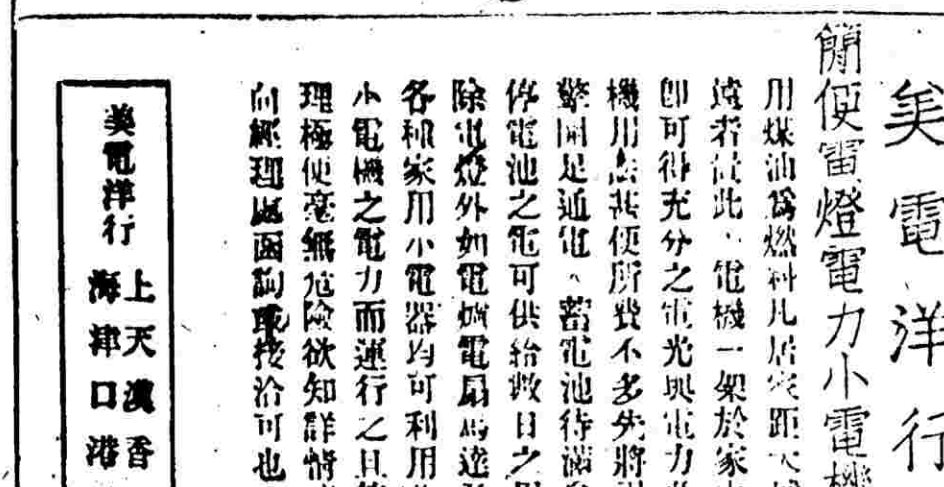 美電洋行
簡便電燈電力小電機
用煤油為燃料凡居家距大城
遠者備此電機一架於家
即可得充分之電光與電力
機用法甚便所費不多先將
擎開足通電蓄電池待滿
停電池之電可供給數日之
除電燈外如電爐電扇馬達
各種家用小電器均可利用
小電機之電力而運行之且
理極便毫無危險欲知詳情
向經理處函詢或接洽可也
美電洋行
上海 天津
漢口 香港